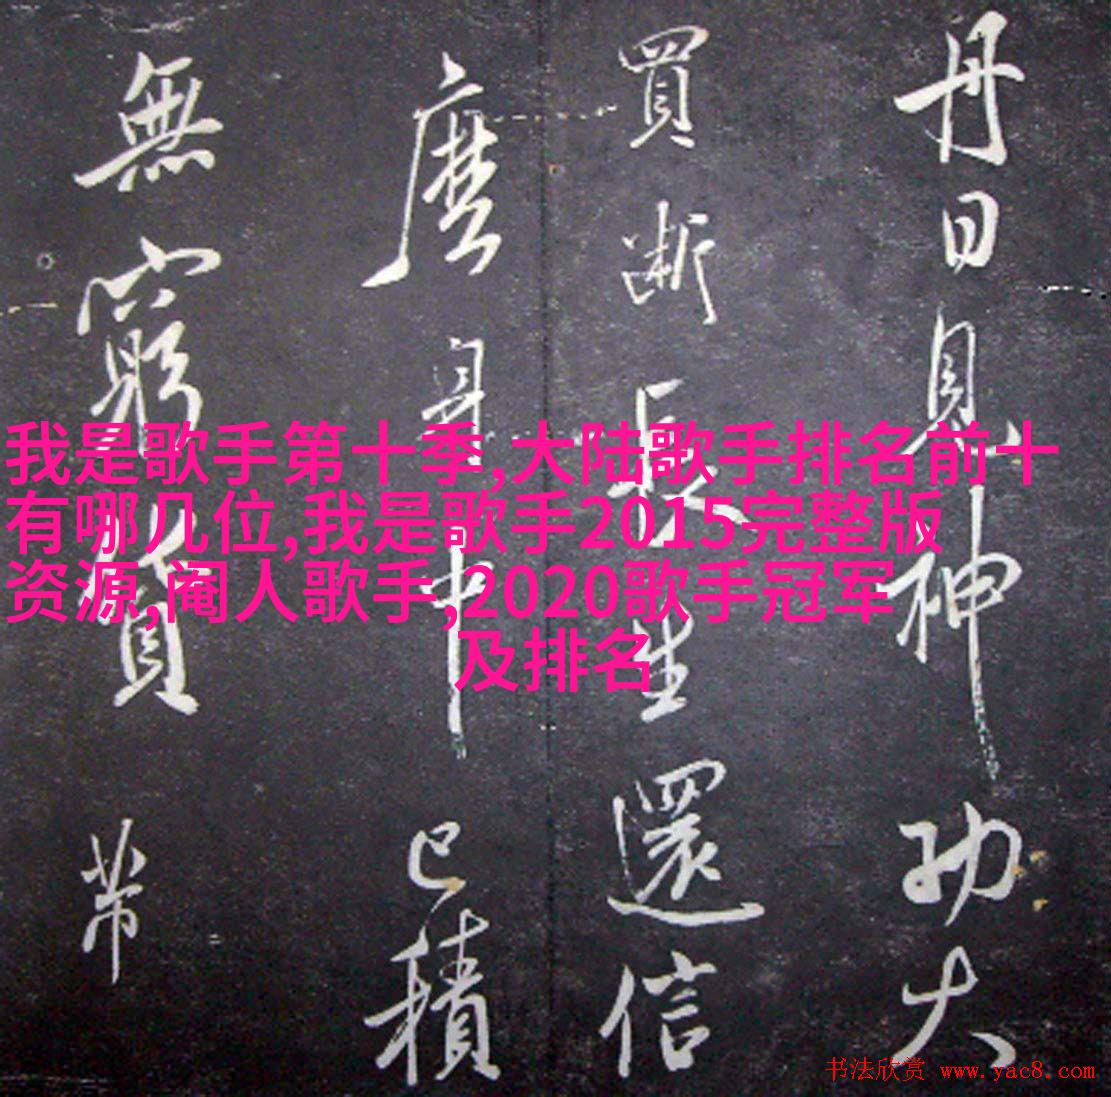 丹日見神功大
買斷長生還信
麼身中已積
無窮貨帶
我是歌手第十季,大陆歌手排名前十
有哪几位,我是歌手2015完整版
资源,阉人歌手,2020歌手冠军
及排名
书法欣赏 www.yac8.com